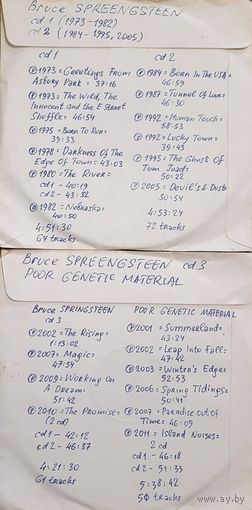 Bruce SPREENGSTEEN
cd 1 (1973-1982)
cd 2 (1984-1995, 2005).
cd 1
℗1973=Greetings From
Asbury Park = 37:16
℗1973=The Wild, The
Innocent and the E Street
Shuffle= 46:54
℗1975=Born To Run=
39:33
℗1978=Darkness Of The
Edge Of Town=43:03
℗1980=The River=
cd1-40:19
cd2-43:32
℗1982=Nebraska=
40:50
4:51:30
64 tracks
cd 2
℗1984=Born In The USA=
46:59
℗1987=Tunnel Of Love=
46:30
℗1992=Human Touch=
58:53
℗1992=Lucky Town=
39:43
℗1995=The Ghost Of
Tom Joad=
50:22
℗2005=Devils & Dust=
50:54
4:53:24
72 tracks
Bruce SPREENGSTEEN cd 3
POOR GENETIC MATERIAL
Bruce SPRINGSTEEN
cd 3
℗2002=The Rising=
1:13:02
℗2007=Magic=
47:54
℗2009=Working On
A Dream=
51:42
℗2010=The Promise=
(2cd)
cd1-42:12
cd2-46:37
4:21:30
61 tracks
POOR GENETIC MATERIAL
℗2001=Summerland=
43:24
℗2002=Leap Into Fall=
47:42
℗2003=Winter's Edge=
52:53
℗2006=Spring Tidings=
50:41
℗2007=Paradise out of
Time=46:09
℗2011=Island Noises=
2cd
cd1-46:18
cd2-51:33
5:38:42
50 tracks
ay.by